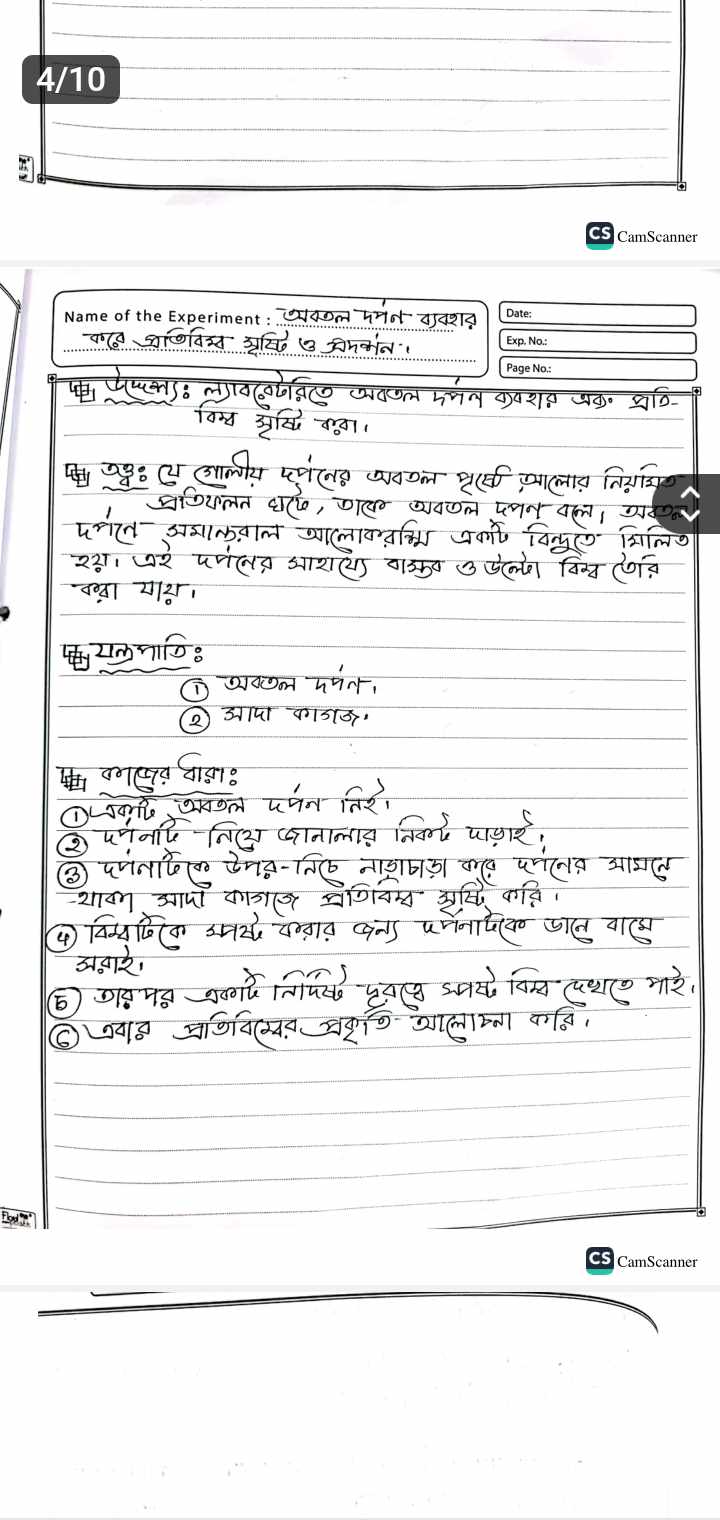 4/10
CS CamScanner
Name of the Experiment : অবতল দর্পন ব্যবহার
করে প্রতিবিম্ব সৃষ্টি ও প্রদর্শন।
Date:
Exp. No.:
Page No.:
উদ্দেশ্য: ল্যাবরেটরিতে অবতল দর্পন ব্যবহার এবং প্রতি-
বিম্ব সৃষ্টি করা।
তত্ত্ব: যে গোলীয় দর্পনের অবতল পৃষ্ঠে আলোর নিয়মিত
প্রতিফলন ঘটে, তাকে অবতল দর্পণ বলে। অবতল
দর্পনে সমান্তরাল আলোকরশ্মি একটি বিন্দুতে মিলিত
হয়। এই দর্পনের সাহায্যে বাস্তব ও উল্টো বিম্ব তৈরি
করা যায়।
যন্ত্রপাতি:
① অবতল দর্পন।
② সাদা কাগজ।
কাজের ধারা:
① একটি অবতল দর্পন নিই।
② দর্পনটি নিয়ে জানালার নিকট দাড়াই।
③ দর্পনটিকে উপর-নিচে নাড়াচাড়া করে দর্পনের সামনে
থাকা সাদা কাগজে প্রতিবিম্ব সৃষ্টি করি।
④ বিম্বটিকে স্পষ্ট করার জন্য দর্পনটিকে ডানে বামে
সরাই।
⑤ তারপর একটি নির্দিষ্ট দূরত্বে স্পষ্ট বিম্ব দেখতে পাই।
⑥ এবার প্রতিবিম্বের প্রকৃতি আলোচনা করি।
CS CamScanner